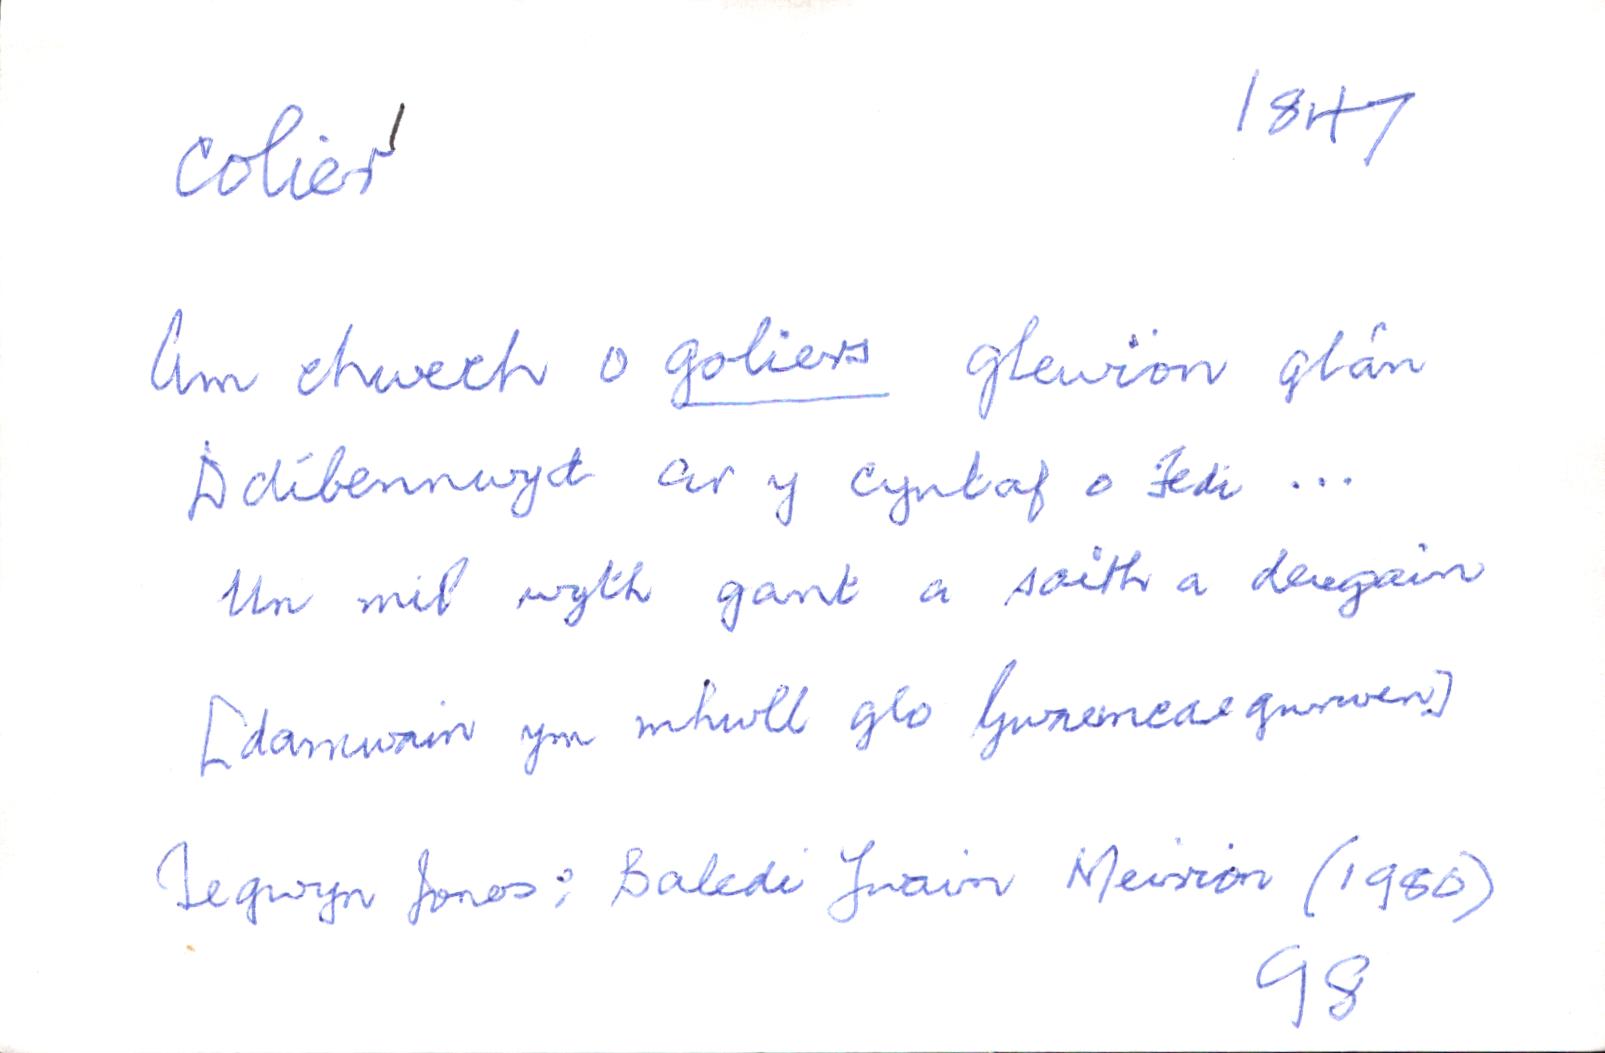 colier 1847
Am chwech o goliers glewion glân
Ddibennwyd ar y cyntaf o Fedi ...
Un mil wyth gant a saith a deugain
[damwain ym mhwll glo Gwaencaegurwen]
Tegwyn Jones: Baledi Ywain Meirion (1980)
98